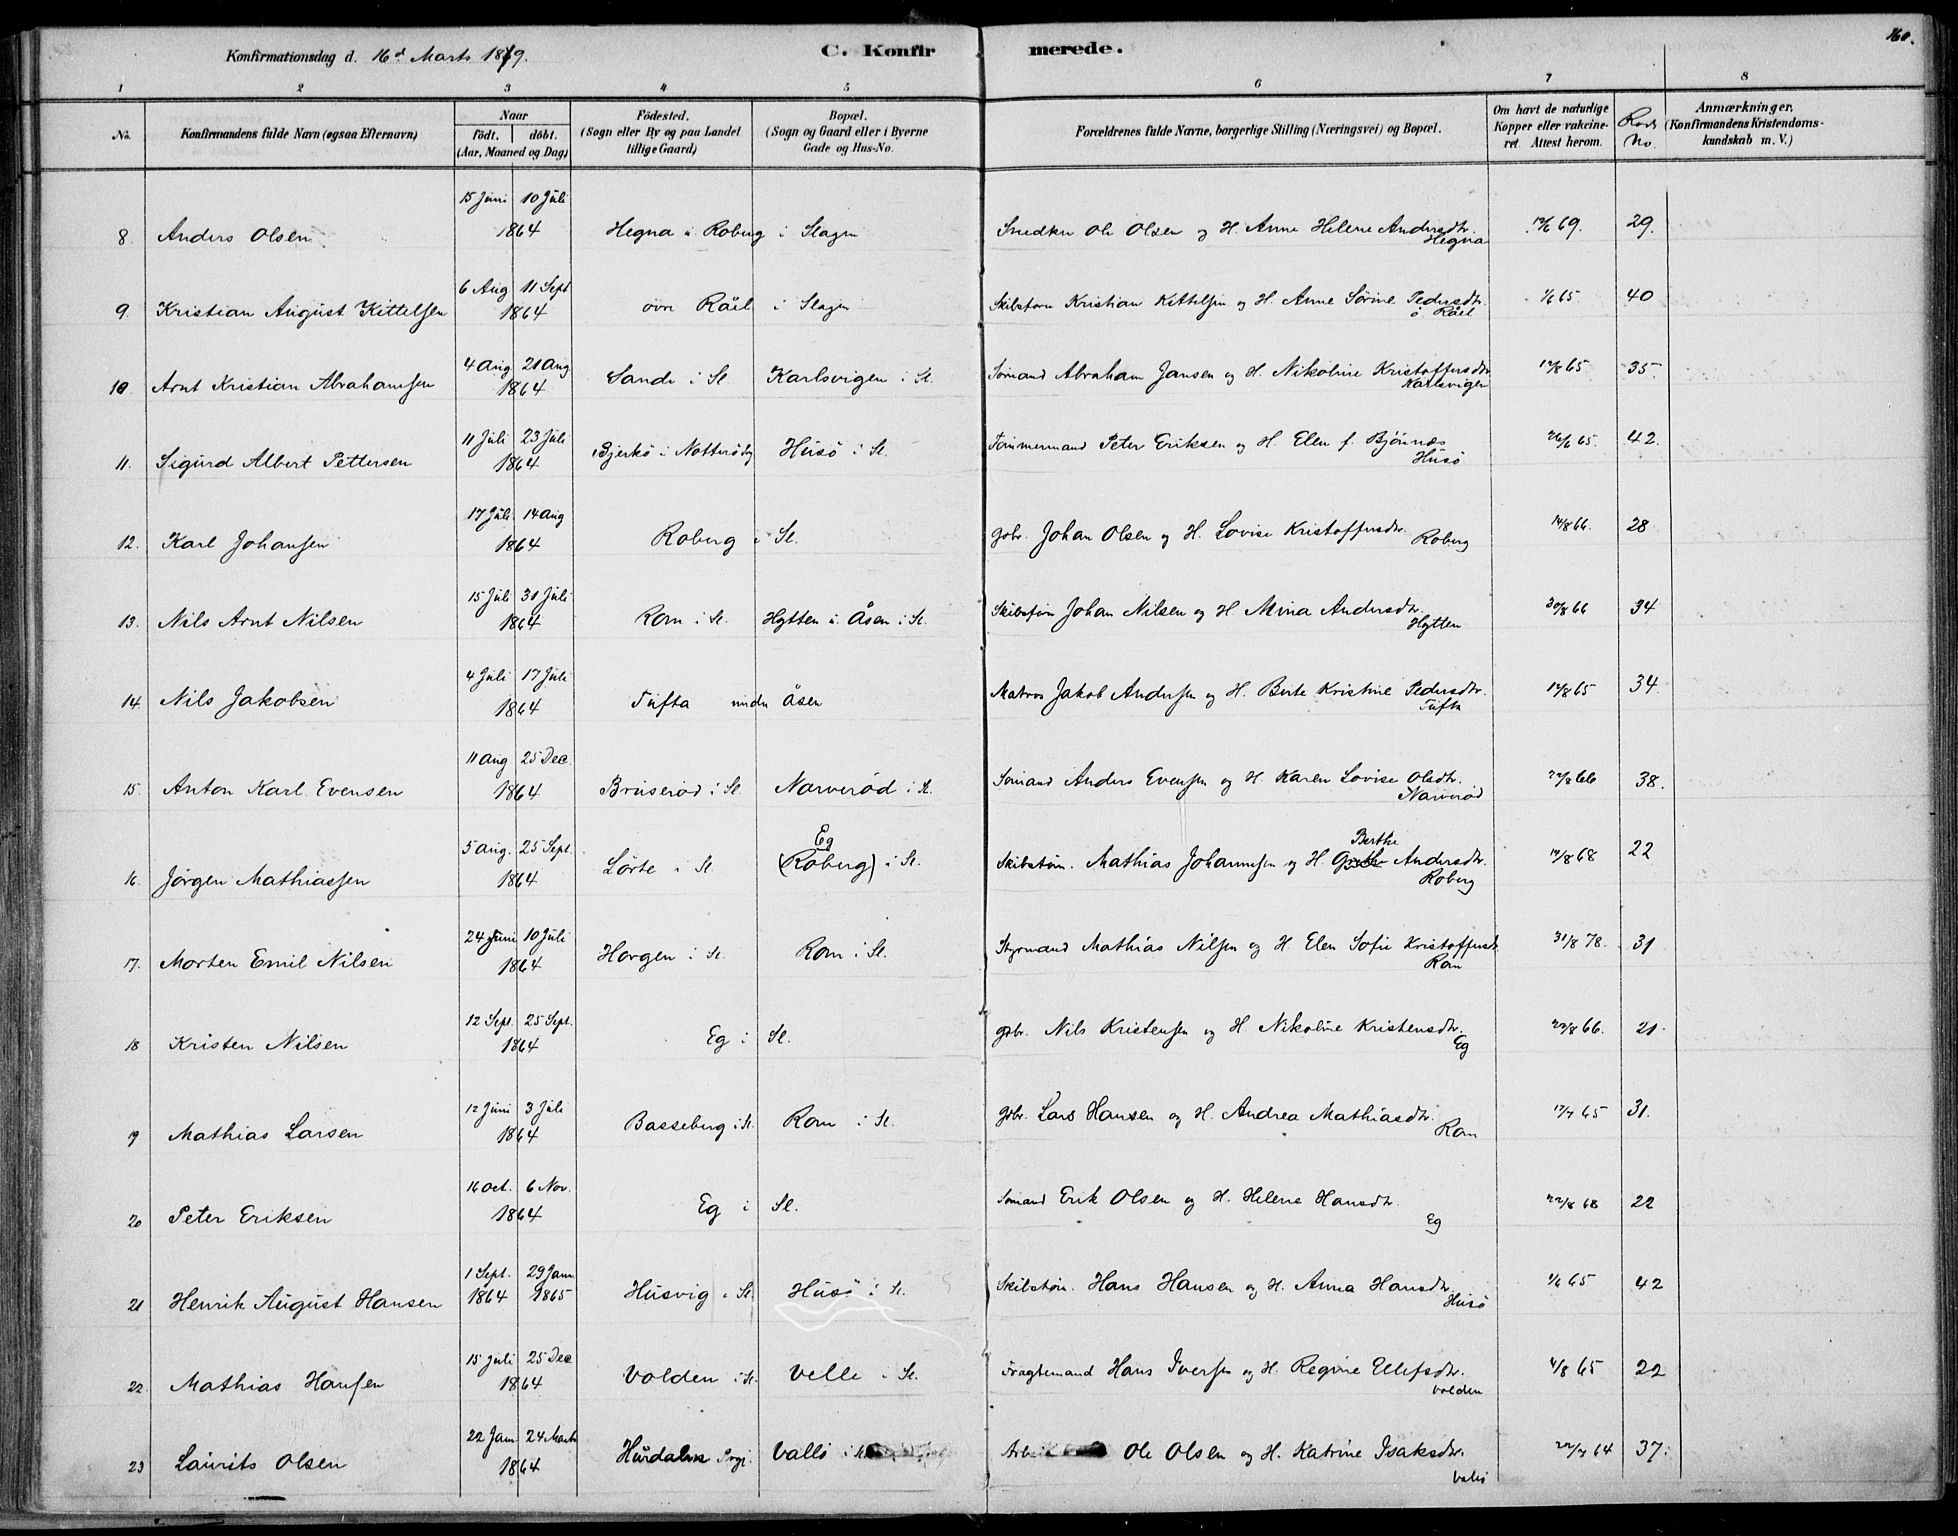 160.
Konfirmationsdag d. 16d Marts 1879.
C. Konfirmerede.
1 2 3 4 5 6 7 8
No.
Konfirmandens fulde Navn (ogsaa Efternavn)
Naar
födt. döbt.
(Aar, Maaned og Dag)
Födested.
(Sogn eller By og paa Landet
tillige Gaard)
Bopæl.
(Sogn og Gaard eller i Byerne
Gade og Hus-No.
Forældrenes fulde Navne, borgerlige Stilling (Næringsvei) og Bopæl.
Om havt de naturlige
Kopper eller vakcine-
ret. Attest herom.
Rode
No.
Anmærkninger.
(Konfirmandens Kristendoms-
kundskab m. V.)
15 Juni 10 Juli
8. Anders Olsen 1864 Hegna u. Roberg i Slagen Snedker Ole Olsen og H. Anne Helene Andersdtr. 69. 29.
Hegna
6 Aug 11 Sept
9. Kristian August Kittelsen 1864 övre Råel i Slagen Skibstøm Kristian Kittelsen og H. Anne Sörine Pedersdtr. 1/6 65. 40
ö. Råel
4 Aug 21 Aug
10 Arnt Kristian Abrahamsen 1864 Sande i Sl Karlsvigen i Sl. Sömand Abraham Jansen og H. Nikoline Kristoffersdtr 12/8 65 35
Karlsvigen
11 Juli 23 Juli
11. Sigurd Albert Pettersen 1864 Bjerkö i Nötterö Husö i Sl. Tömmermand Peter Eriksen og H. Elen f. Bjönnes 26/6 65. 42.
Husö
17 Juli 14 Aug
12. Karl Johansen 1864 Roberg i Sl. Gbr. Johan Olsen og H. Lovise Kristoffersdtr. 14/8 66. 28
Roberg
15 Juli 31 Juli
13. Nils Arnt Nilsen 1864 Rom i Sl. Hytten u. Åsen i Sl. Skibstøm Johan Nilsen og H Mina Andersdtr. 30/8 66 34
Hytten
4 Juli 17 Juli
14. Nils Jakobsen 1864 Tufta under Åsen Matros Jakob Andersen og H. Berte Kristine Pedersdtr. 12/8 65 34.
Tufta
11 Aug 25 Dec
15. Anton Karl Evensen 1864 Bruseröd i Sl. Narveröd i Sl. Sömand Anders Evensen og H Karen Lovise Olsdtr. 22/8 66 38.
Narveröd
5 Aug. 25 Sept. Eg Berthe
16. Jörgen Mathiassen 1864 Lörte i Sl. (Roberg) i Sl. Skibstøm. Mathias Johannesen og H. Andersdtr. 12/8 68 22
Roberg
24 Juni 10 Juli
17. Morten Emil Nilsen 1864 Horgen i Sl. Rom i Sl. Styrmand Mathias Nilsen og H Elen Sofie Kristoffersdtr 31/8 78. 31
Rom
12 Sept. 25 Sept.
18 Kristen Nilsen 1864 Eg i Sl. gbr. Nils Kristensen og H Nikoline Kristensdtr. 22/8 66. 21
Eg
12 Juni 3 Juli
19 Mathias Larsen 1864 Basseberg i Sl. Rom i Sl. Gbr. Lars Hansen og H. Andrea Mathiasdtr. 17/7 65 31.
Rom
16 Oct. 6 Nov.
20 Peter Eriksen 1864 Eg i Sl. Sömand Erik Olsen og H. Helene Hansdtr. 22/8 68 22
Eg
1 Sept. 29 Jan.
21 Henrik August Hansen 1864 1865 Husvig i Sl. Husö i Sl. Skibstøm. Hans Hansen og H. Anna Hansdtr. 1/6 65 42
Husö
15 Juli 25 Dec
22. Mathias Hansen 1864 Volden i Sl. Velle i Sl. Fragtemand Hans Iversen og H. Regine Ellefsdtr. 4/8 65 22
Volden
22 Jan 24 Marts
23 Laurits Olsen 1864 Hurdalen Prgj. Vallö i Sl Arb Ole Olsen og H. Katrine Isaksdtr. 22/7 64 37.
Vallö